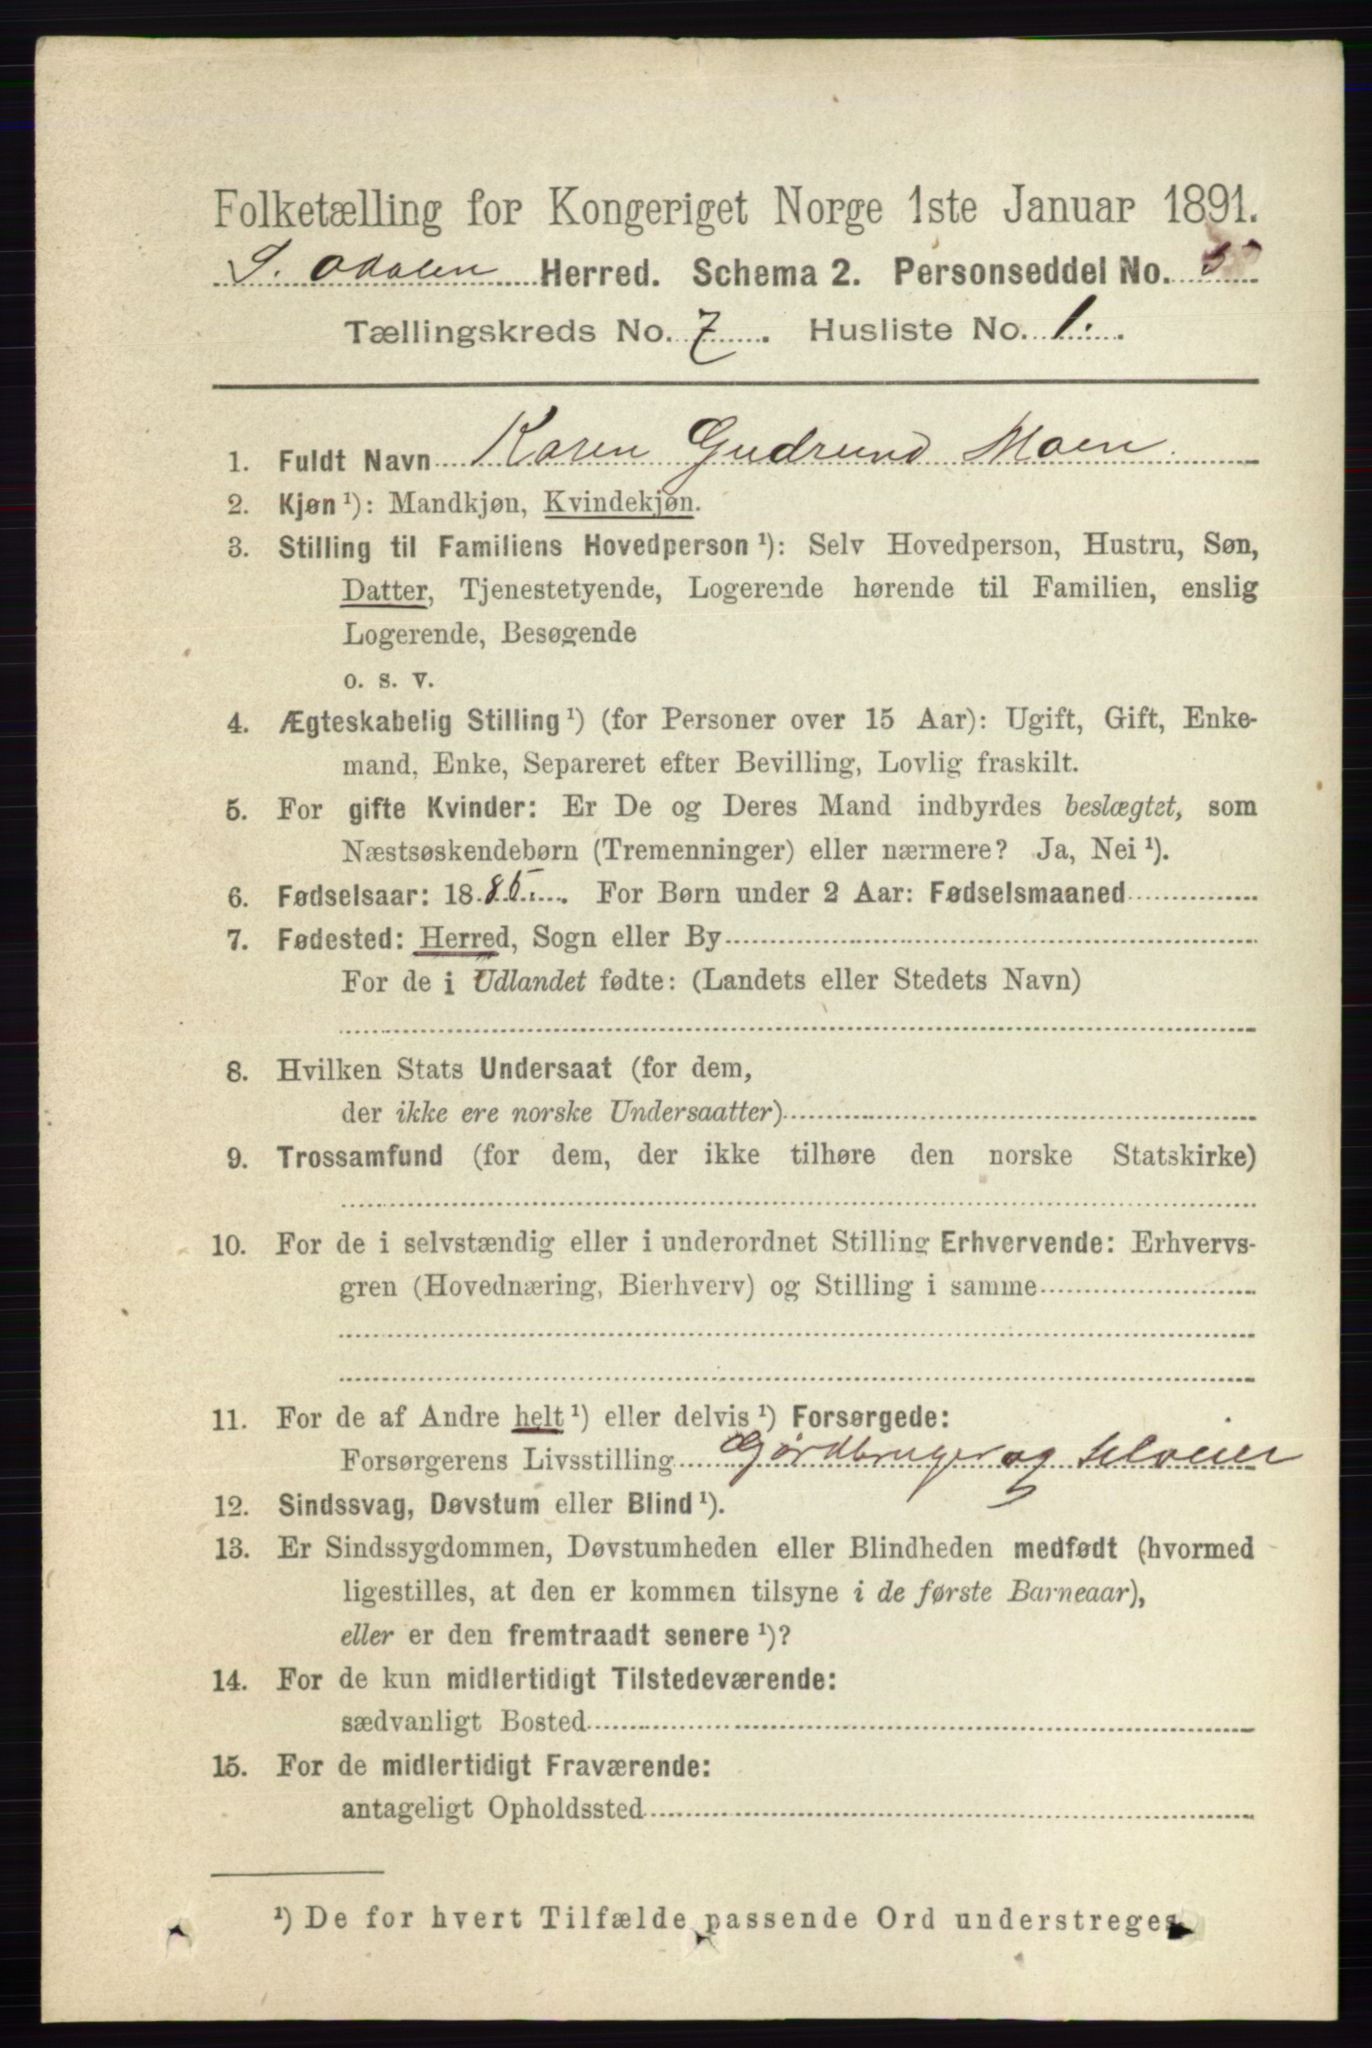 Folketælling for Kongeriget Norge 1ste Januar 1891.
S. Odalen Herred. Schema 2. Personseddel No.
Tællingskreds No. 7. Husliste No. 1.
1. Fuldt Navn Karen Gudrund Moen
2. Kjøn ¹): Mandkjøn, Kvindekjøn.
3. Stilling til Familiens Hovedperson ¹): Selv Hovedperson, Hustru, Søn,
Datter, Tjenestetyende, Logerende hørende til Familien, enslig
Logerende, Besøgende
o. s. v.
4. Ægteskabelig Stilling ¹) (for Personer over 15 Aar): Ugift, Gift, Enke-
mand, Enke, Separeret efter Bevilling, Lovlig fraskilt.
5. For gifte Kvinder: Er De og Deres Mand indbyrdes beslægtet, som
Næstsøskendebørn (Tremenninger) eller nærmere? Ja, Nei ¹).
6. Fødselsaar: 1885. For Børn under 2 Aar: Fødselsmaaned
7. Fødested: Herred, Sogn eller By
For de i Udlandet fødte: (Landets eller Stedets Navn)
8. Hvilken Stats Undersaat (for dem,
der ikke ere norske Undersaatter)
9. Trossamfund (for dem, der ikke tilhøre den norske Statskirke)
10. For de i selvstændig eller i underordnet Stilling Erhvervende: Erhvervs-
gren (Hovednæring, Bierhverv) og Stilling i samme
11. For de af Andre helt ¹) eller delvis ¹) Forsørgede:
Forsørgerens Livsstilling Gjørdbruger og Selveier
12. Sindssvag, Døvstum eller Blind ¹).
13. Er Sindssygdommen, Døvstumheden eller Blindheden medfødt (hvormed
ligestilles, at den er kommen tilsyne i de første Barneaar),
eller er den fremtraadt senere ¹)?
14. For de kun midlertidigt Tilstedeværende:
sædvanligt Bosted
15. For de midlertidigt Fraværende:
antageligt Opholdssted
¹) De for hvert Tilfælde passende Ord understreges